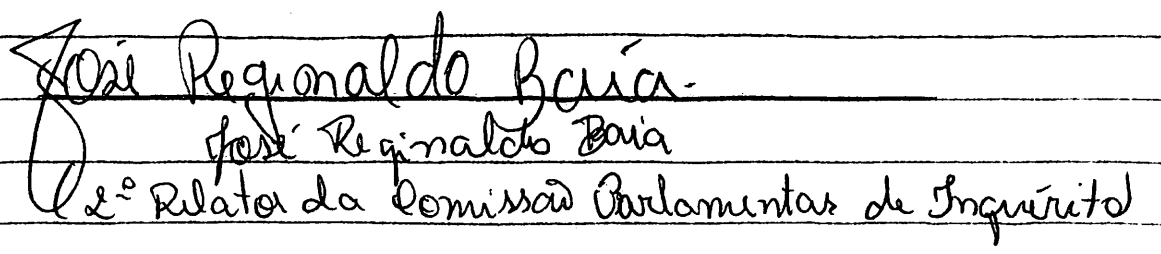 José Reginaldo Baía.
José Reginaldo Baia
2º Relator da Comissão Parlamentar de Inquérito